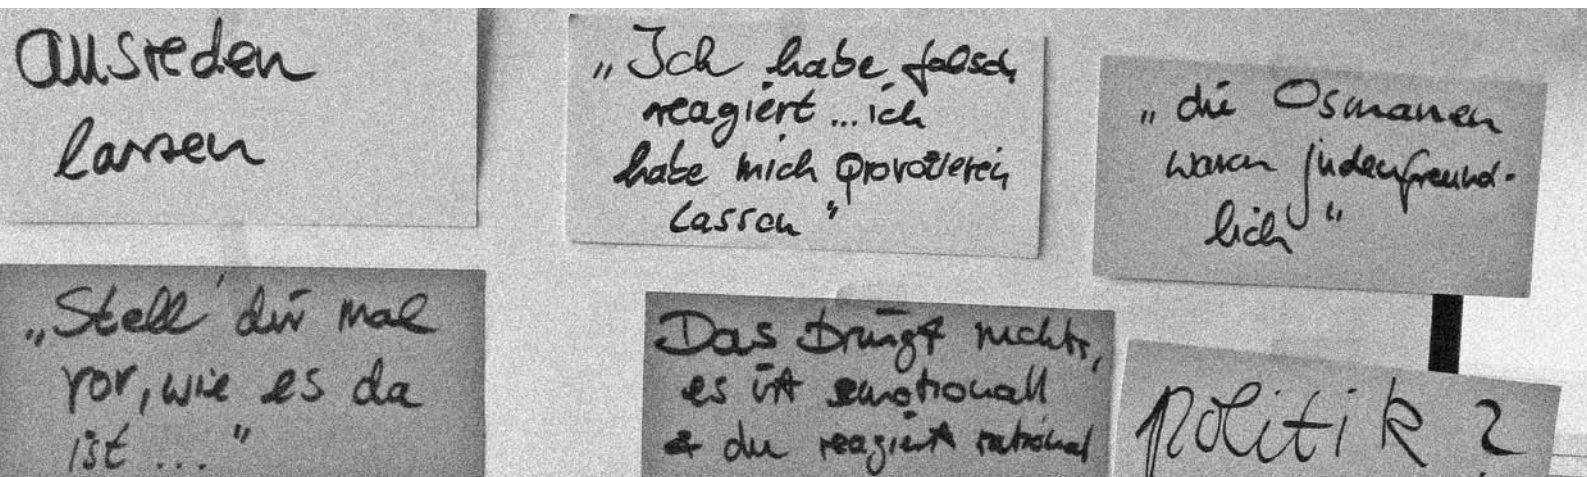 ausreden
lassen
„Ich habe falsch
reagiert...ich
habe mich provozieren
lassen“
„die Osmanen
waren judenfreund-
lich“
„Stell' dir mal
vor, wie es da
ist..."
Das bringt nichts,
es ist emotionall
& du reagierst rational
Politik?